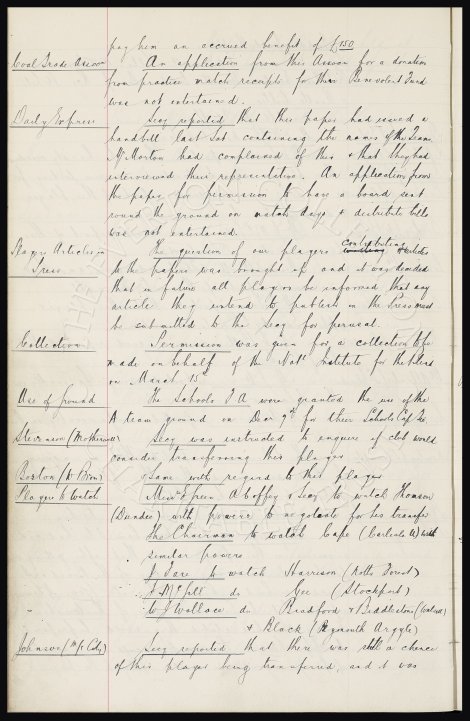 pay him an accrued benefit of £150
Coal Trade Assoc
An application from this Assoc for a donation
from practice match receipts for their Benevolent Fund
was not entertained.
Daily Express
Secy reported that this paper had issued a
handbill last Sat containing the names of the Team
Mr Morton had complained of this & that they had
interviewed their representative. An application from
the paper for permission to have a board sent
round the ground on match days & distribute bills
was not entertained.
Players Articles in
Press
The question of our players contributing articles
to the papers was brought up and it was decided
that in future all players be informed that any
article they intend to publish in the Press must
be submitted to the Secy for perusal.
Collection
Permission was given for a collection to be
made on behalf of the Natl Institute for the Blind
on March 15th
Use of Ground
The Schools F A were granted the use of the
A team ground on Decr 9th for their Schools Cup Tie
Stevenson (Motherwell)
Secy was instructed to enquire if club would
consider transferring this player
Boston (W Brom)
Same with regard to this player
Players to Watch
Messrs Green & Coffey & Secy to watch Thomson
(Dundee) with powers to negotiate for his transfer
The Chairman to watch Cape (Carlisle U) with
similar powers
J Sare to watch Harrison (Notts Forest)
A McGill do Gee (Stockport)
W J Wallace do Bradford & Biddlestone (Walsall)
& Black (Plymouth Argyle)
Johnson (M/c City)
Secy reported that there was still a chance
of this player being transferred, and it was